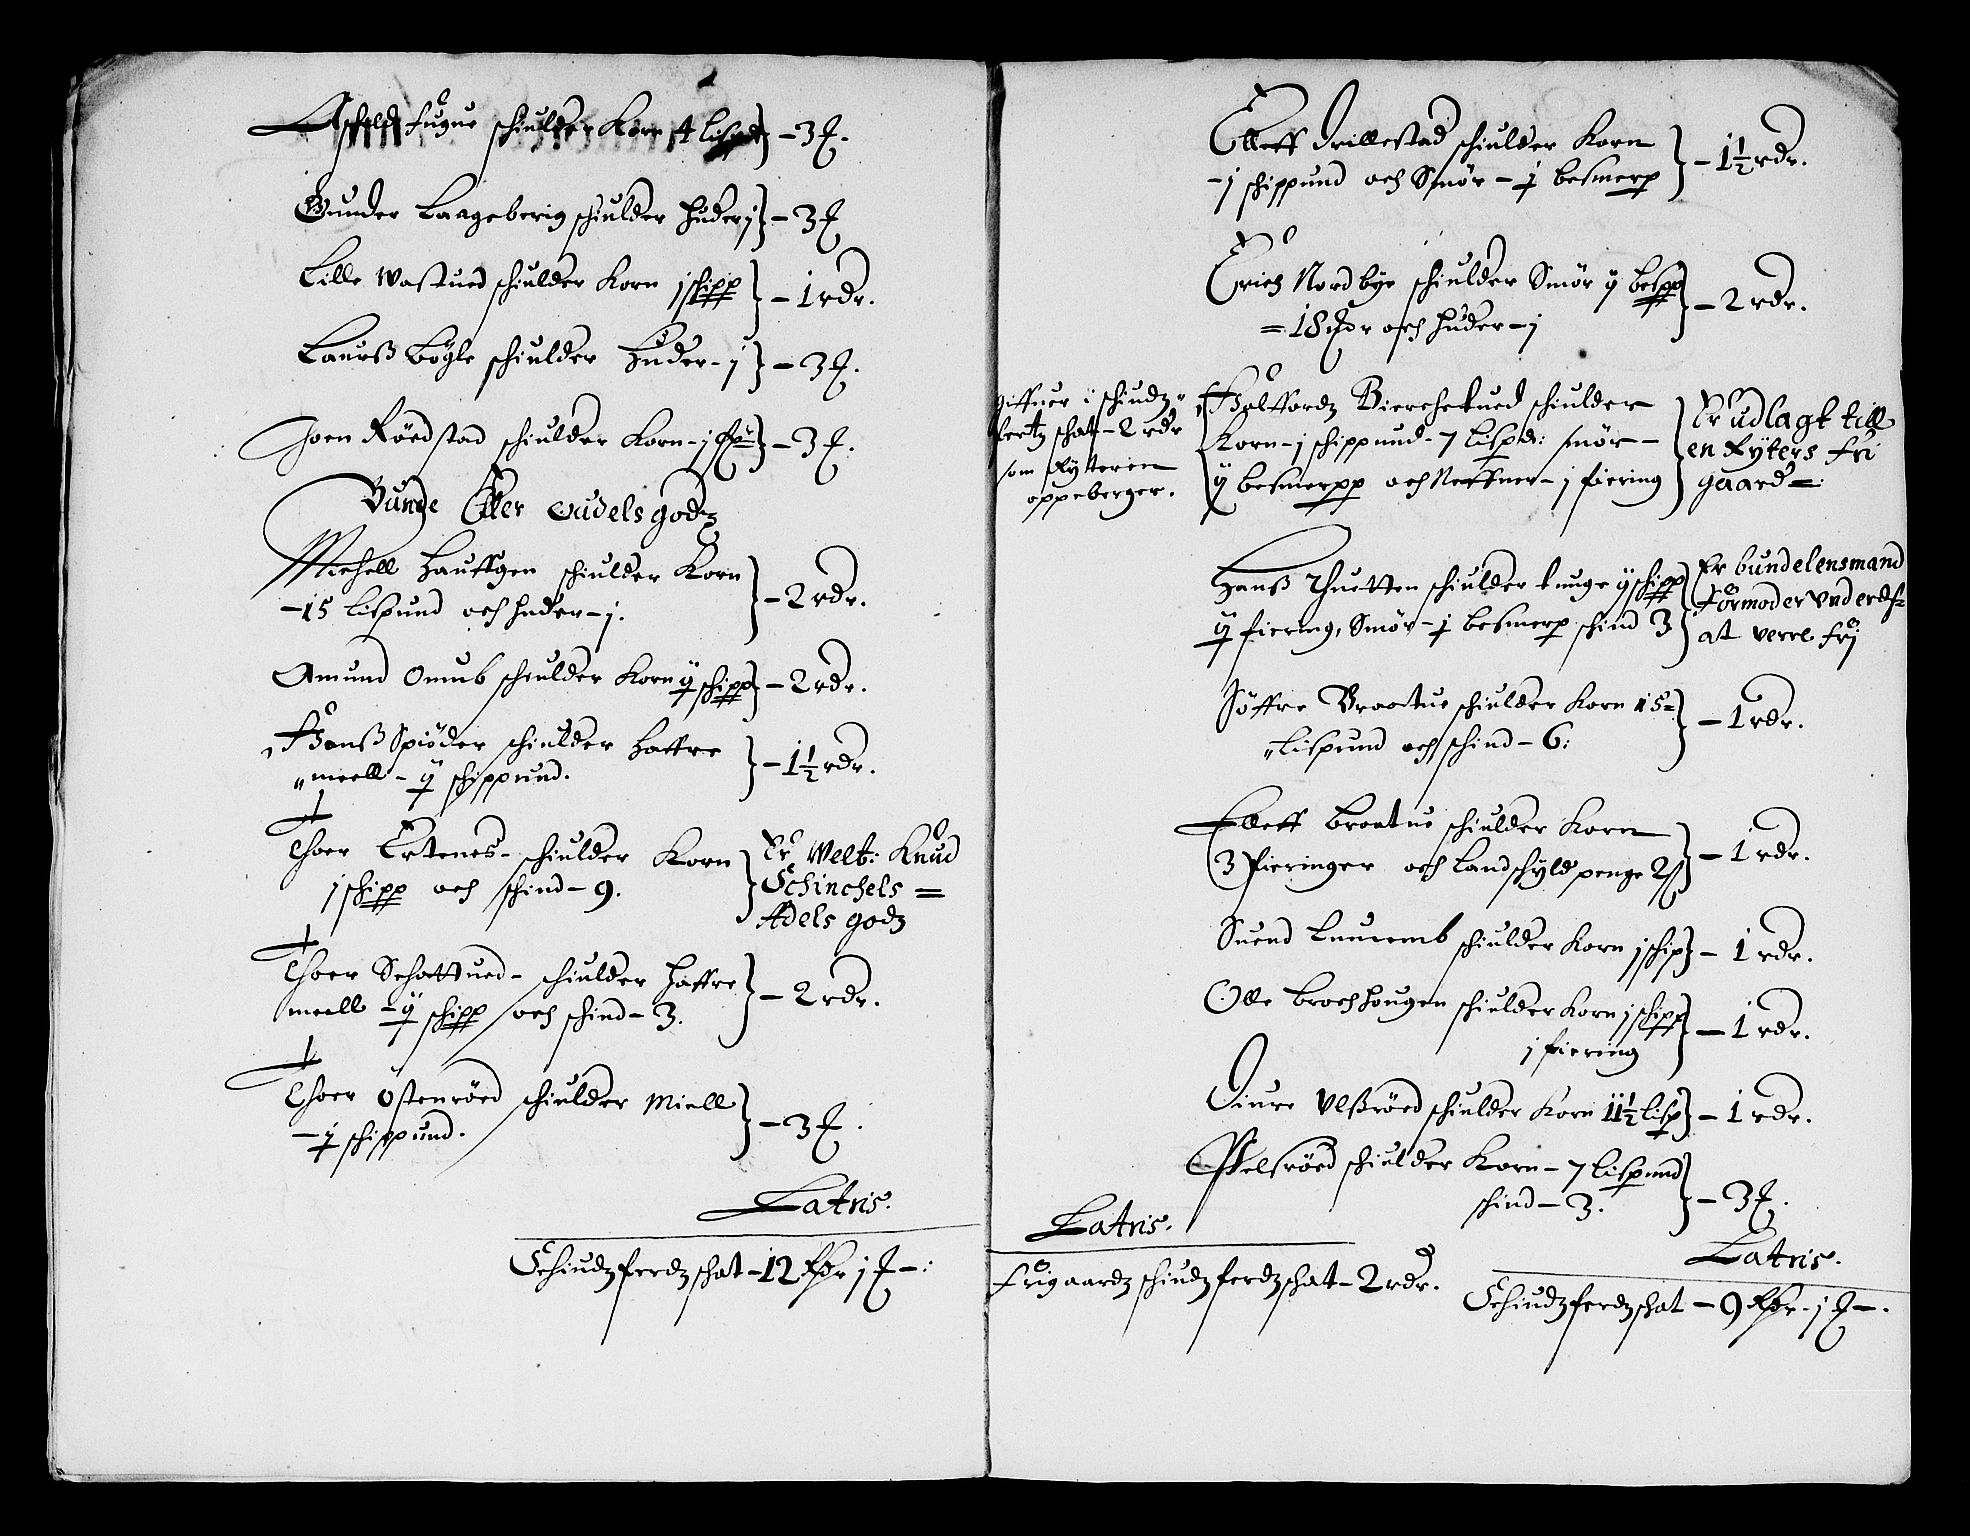 schiulder Korn 4 lispd } – 3 ƒ.
Gunder Laageberig schiulder huder j } – 3 ƒ
Lille Wastued schiulder Korn j schipp } – 1 rdr.
Laurß Bøgle schiulder Huder – j } – 3 ƒ.
Joen Røedstad schiulder Korn – j } – 3 ƒ.
Bunde Eller Oudels godz
Michell Hauffgen schiulder Korn
– 15 lispund och huder – j. } – 2 rdr.
Amund Omub schiulder Korn ij schipp } – 2 rdr.
Hanß Spiøder schiulder Haffre
meell – ij schippund. } – 1½ rdr.
Thoer Ertenes – schiulder Korn
j schipp och schind – 9. } Er Welb: Knud
Schinchels =
Adels godz
Thoer Schattued – schiulder haffre
meell – ij schipp och schind – 3. } – 2 rdr.
Thoer Østenrøed schiulder Miell
– ij schippund. } – 3 ƒ.
Latris.
Schiudzferdz schat – 12 Rdr j ƒ – :
Elleff Drillestad schiulder Korn
– j schippund och Smør – j besmerp } – 1½ rdr.
Erich Nordbye schiulder Smør ij bespp
= 18 och huder – j } – 2 rdr.
Giffuer i schiudz
fertz schat – 2 rdr
som Rytteren
oppeberger.
Halfford Bierchetued schiulder
Korn – j schippund – 7 lispd: smør –
ij besmerpp och Neffner – j fiering } Er udlagt till
en Ryters fri
gaard = :
Hanß Thuetten schiulder tunge ij schipp
ij fiering, Smør – j besmerp schind 3 } Er bundelensmand
Formoder under
at verre frj
Søffre Braatue schiulder Korn 15 =
lispund och schind – 6 : } – 1 rdr.
Elleff Braatue schiulder Korn
3 fieringer och Landschyld penge 2 ß } – 1 rdr.
Suend schiulder Korn j schip } – 1 rdr.
Olle Brochhougen schiulder Korn j schipp
j fiering } – 1 rdr.
Giure Ulßrøed schiulder Korn 11½ lisp } – 1 rdr.
schiulder Korn – 7 lispund
schind – 3. } – 3 ƒ.
Latris.
Frigaardz schiudzferdz schat – 2 rdr.
Latris.
Schiudzferdz schat – 9 Rdr – j ƒ – .